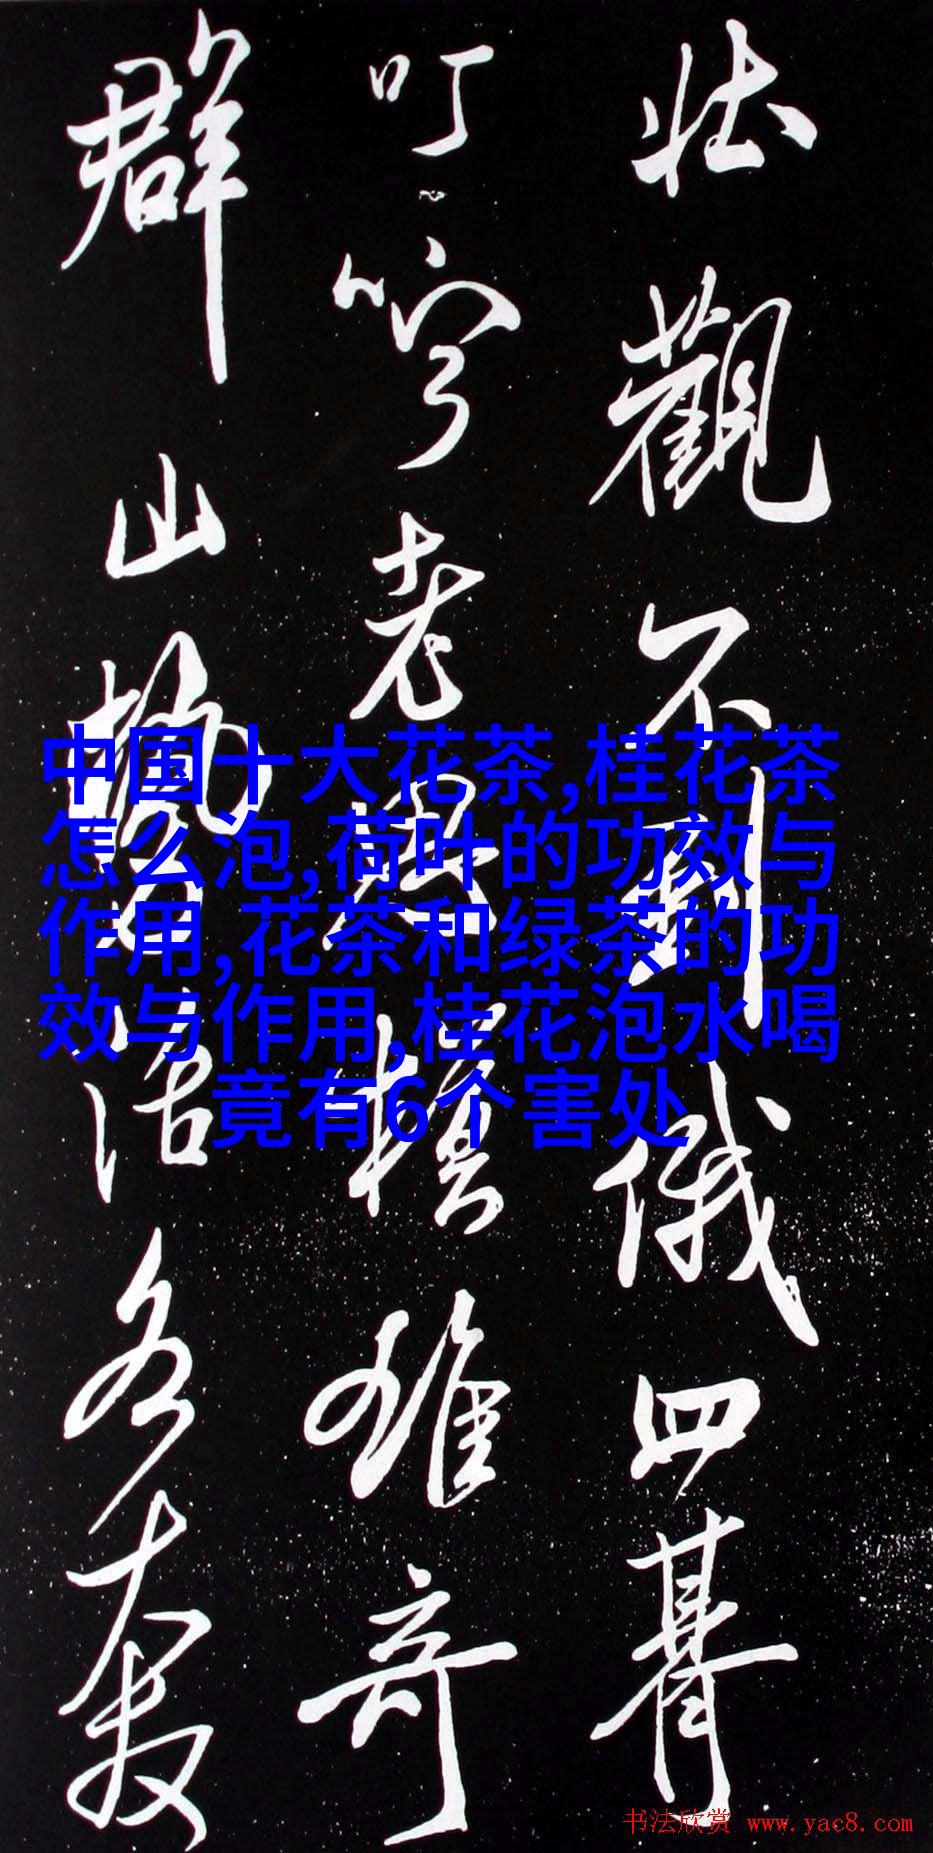 壮觀不到俄四
叮咛老雄奇
群山勢活各
中国十大花茶,桂花茶
怎么泡,荷叶的功效与
作用,花茶和绿茶的功
效与作用,桂花泡水喝
竟有6个害处
书法欣赏 www.yac8.com